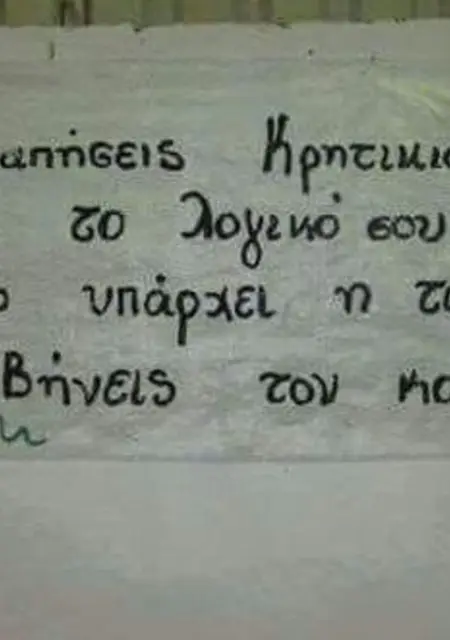 απήσεις Κρητικι
το λογικό σου
υπάρχει η τ
βήνεις τον κα